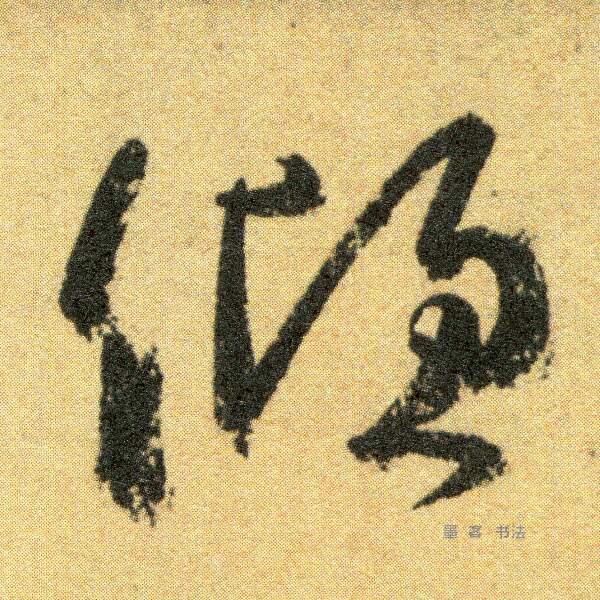 傾
墨 客 书法